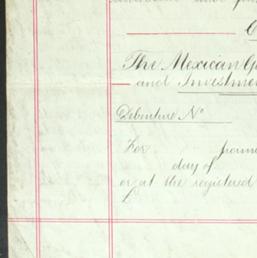 The Mexican
and Investme
Debenture No
For
day of
or at the registered